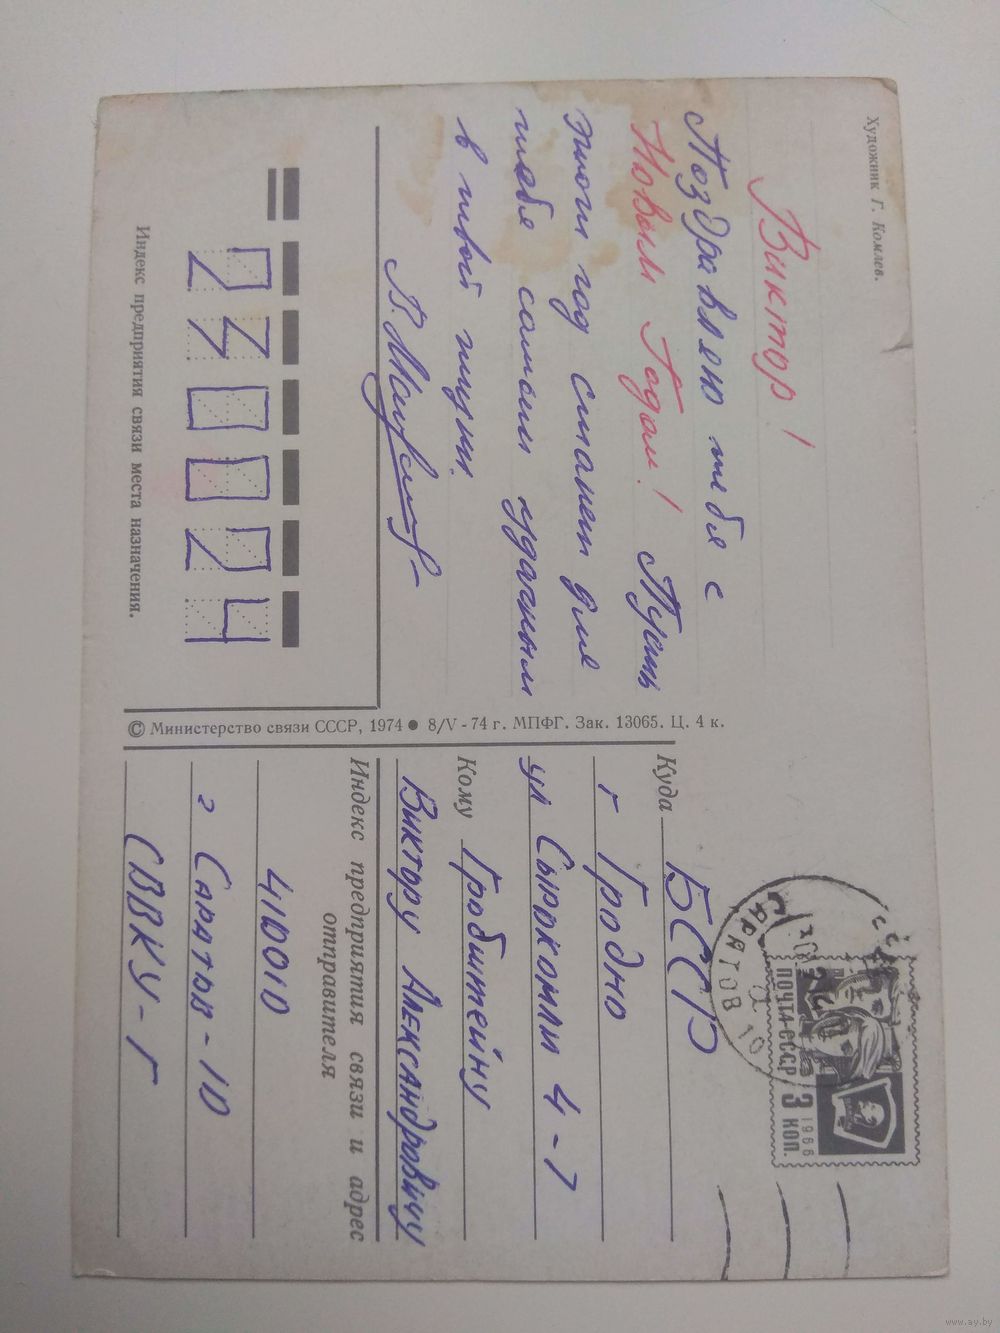 Художник Г. Комлев.
Виктор!
Поздравляю тебя с
Новым Годом! Пусть
этот год станет для
тебя самым удачным
в твоей жизни.
Индекс предприятия связи места назначения.
© Министерство связи СССР, 1974 ● 8/V - 74 г. МПФГ. Зак. 13065. Ц. 4 к.
ПОЧТА СССР 3 КОП.
1966
САРАТОВ 10
Куда БССР
г Гродно
ул Сыокомли 4-7
Кому Гробштейну
Виктору Александровичу
Индекс предприятия связи и адрес
отправителя
410010
г Саратов-10
СВВКУ-Г
www.ay.by